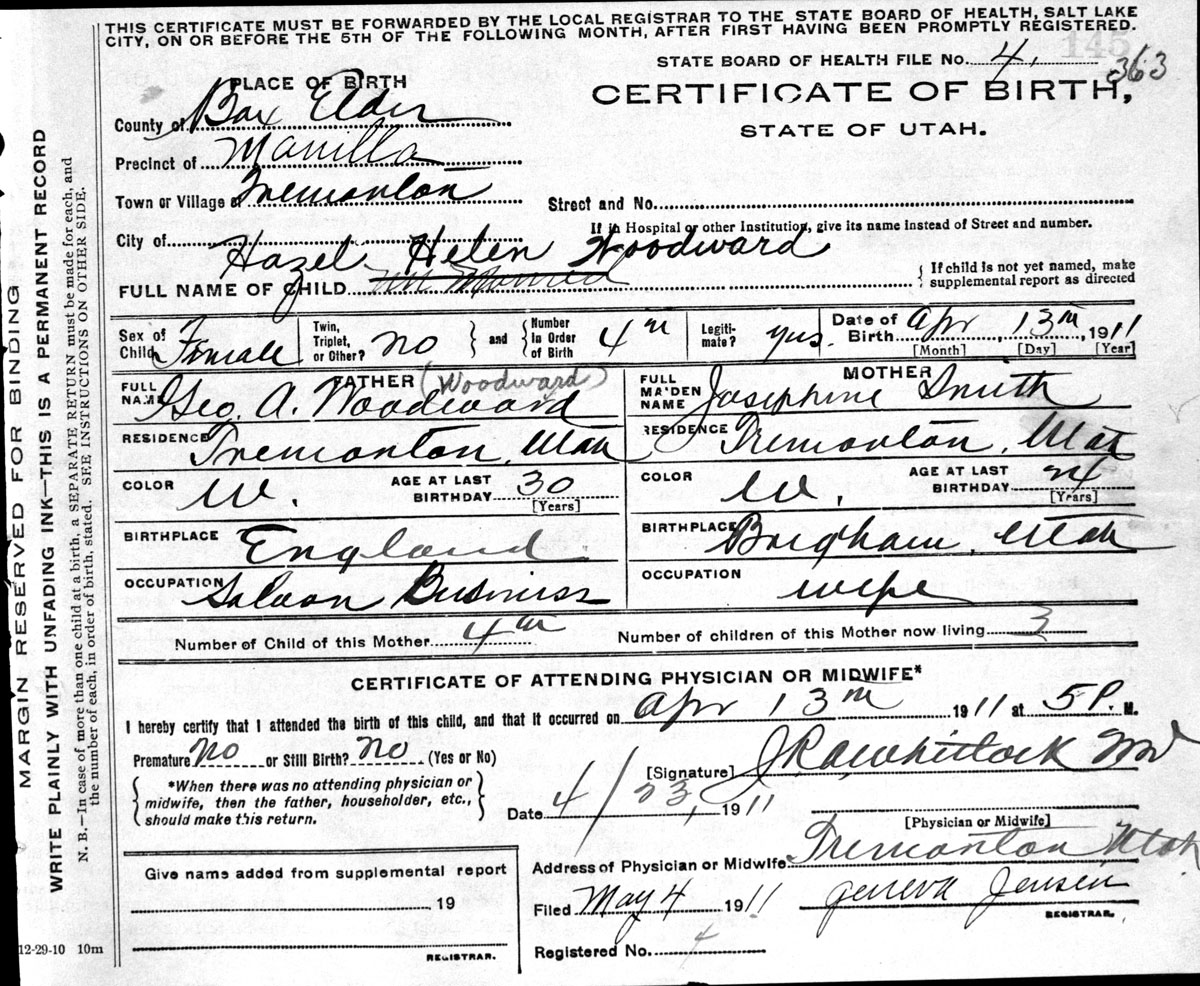 THIS CERTIFICATE MUST BE FORWARDED BY THE LOCAL REGISTRAR TO THE STATE BOARD OF HEALTH, SALT LAKE
CITY, ON OR BEFORE THE 5TH OF THE FOLLOWING MONTH, AFTER FIRST HAVING BEEN PROMPTLY REGISTERED.
145
STATE BOARD OF HEALTH FILE No. 4, 363
PLACE OF BIRTH
CERTIFICATE OF BIRTH,
STATE OF UTAH.
County of Box Elder
Precinct of Manilla
Town or Village of Tremonton
Street and No.
If in Hospital or other Institution, give its name instead of Street and number.
City of
Hazel Helen Woodward
FULL NAME OF CHILD
{ If child is not yet named, make
supplemental report as directed
Sex of Child Female
Twin, Triplet, or Other? No } and { Number In Order of Birth 4th
Legiti-mate? yes.
Date of Birth Apr 13th, 1911
[Month] [Day] [Year]
FATHER (Woodward)
FULL NAME Geo. A. Woodward
RESIDENCE Tremonton, Utah
COLOR W. AGE AT LAST BIRTHDAY 30
[Years]
BIRTHPLACE England
OCCUPATION Saloon Business
MOTHER
FULL MAIDEN NAME Josephine Smith
RESIDENCE Tremonton, Utah
COLOR W. AGE AT LAST BIRTHDAY 24
[Years]
BIRTHPLACE Brigham, Utah
OCCUPATION Wife
Number of Child of this Mother 4th Number of children of this Mother now living 3
CERTIFICATE OF ATTENDING PHYSICIAN OR MIDWIFE*
I hereby certify that I attended the birth of this child, and that it occurred on Apr 13th 1911 at 5 P. M.
Premature No or Still Birth? No (Yes or No)
{ *When there was no attending physician or
midwife, then the father, householder, etc.,
should make this return. }
[Signature] Whitlock MD
Date 4/23, 1911
[Physician or Midwife]
Address of Physician or Midwife Tremonton Utah
Filed May 4 1911 Geneva Jensen
REGISTRAR.
Registered No. 4
Give name added from supplemental report
19
REGISTRAR.
12-29-10 10m
MARGIN RESERVED FOR BINDING
WRITE PLAINLY WITH UNFADING INK—THIS IS A PERMANENT RECORD
N. B.—In case of more than one child at a birth, a SEPARATE RETURN must be made for each, and
the number of each, in order of birth, stated. SEE INSTRUCTIONS ON OTHER SIDE.